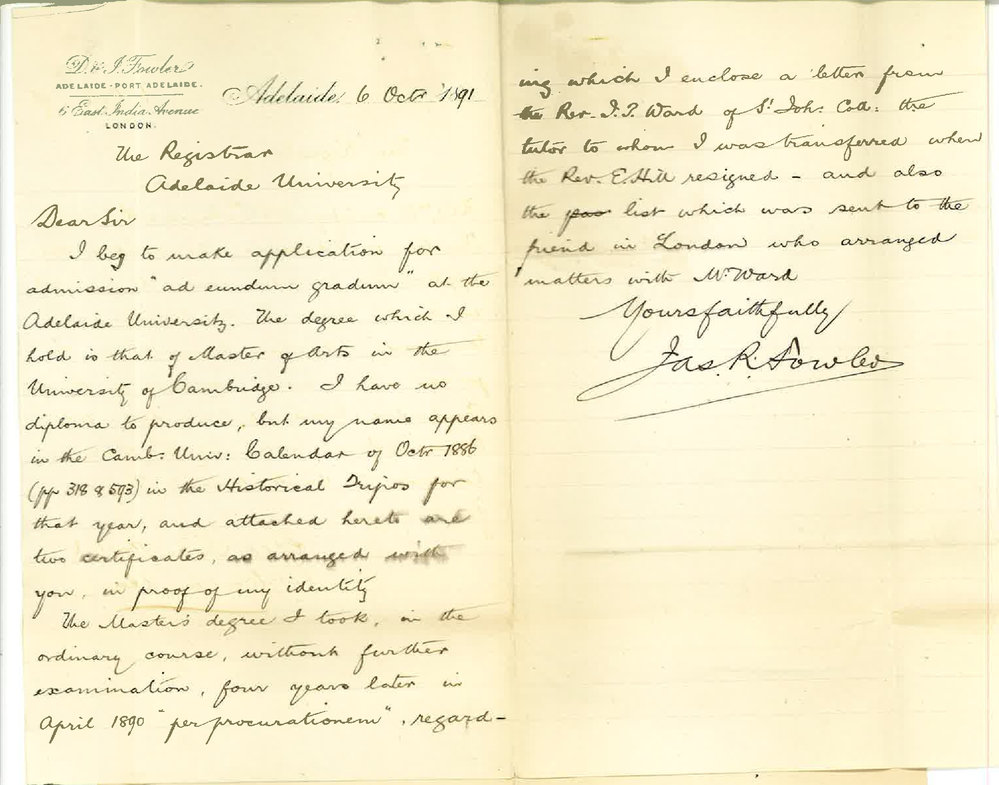 D. & J. Fowler
ADELAIDE - PORT ADELAIDE.
6 East India Avenue
LONDON.
Adelaide, 6 Octr 1891
The Registrar
Adelaide University
Dear Sir
I beg to make application for
admission "ad eundum gradum" at the
Adelaide University. The degree which I
hold is that of Master of Arts in the
University of Cambridge. I have no
diploma to produce, but my name appears
in the Camb: Univ: Calendar of Octr 1886
(pp 318 & 593) in the Historical Tripos for
that year, and attached hereto are
two certificates, as arranged with
you, in proof of my identity
The Master's degree I took, in the
ordinary course, without further
examination, four years later in
April 1890 "per procurationem", regard-
ing which I enclose a letter from
the Rev. J.T. Ward of St Joh: Coll: the
tutor to whom I was transferred when
the Rev. E. Hill resigned - and also
the pas list which was sent to the
friend in London who arranged
matters with Mr Ward
Yours faithfully
Jas. R. Fowler